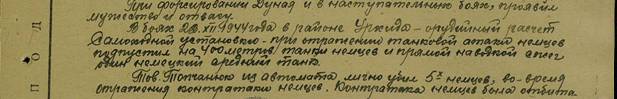 При форсировании Дуная и в наступательных боях, проявил
мужество и отвагу.
В боях 22.XII 1944 года в районе Уркида - орудийный расчет
Самоходной установки - при отражении танковой атаки немцев
подпустил на 400 метров танки немцев и прямой наводкой сжег
один немецкий средний танк.
Тов. Топчанюк из автомата лично убил 5х немцев, во-время
отражения контратаки немцев. Контратака немцев была отбита.
П О Д